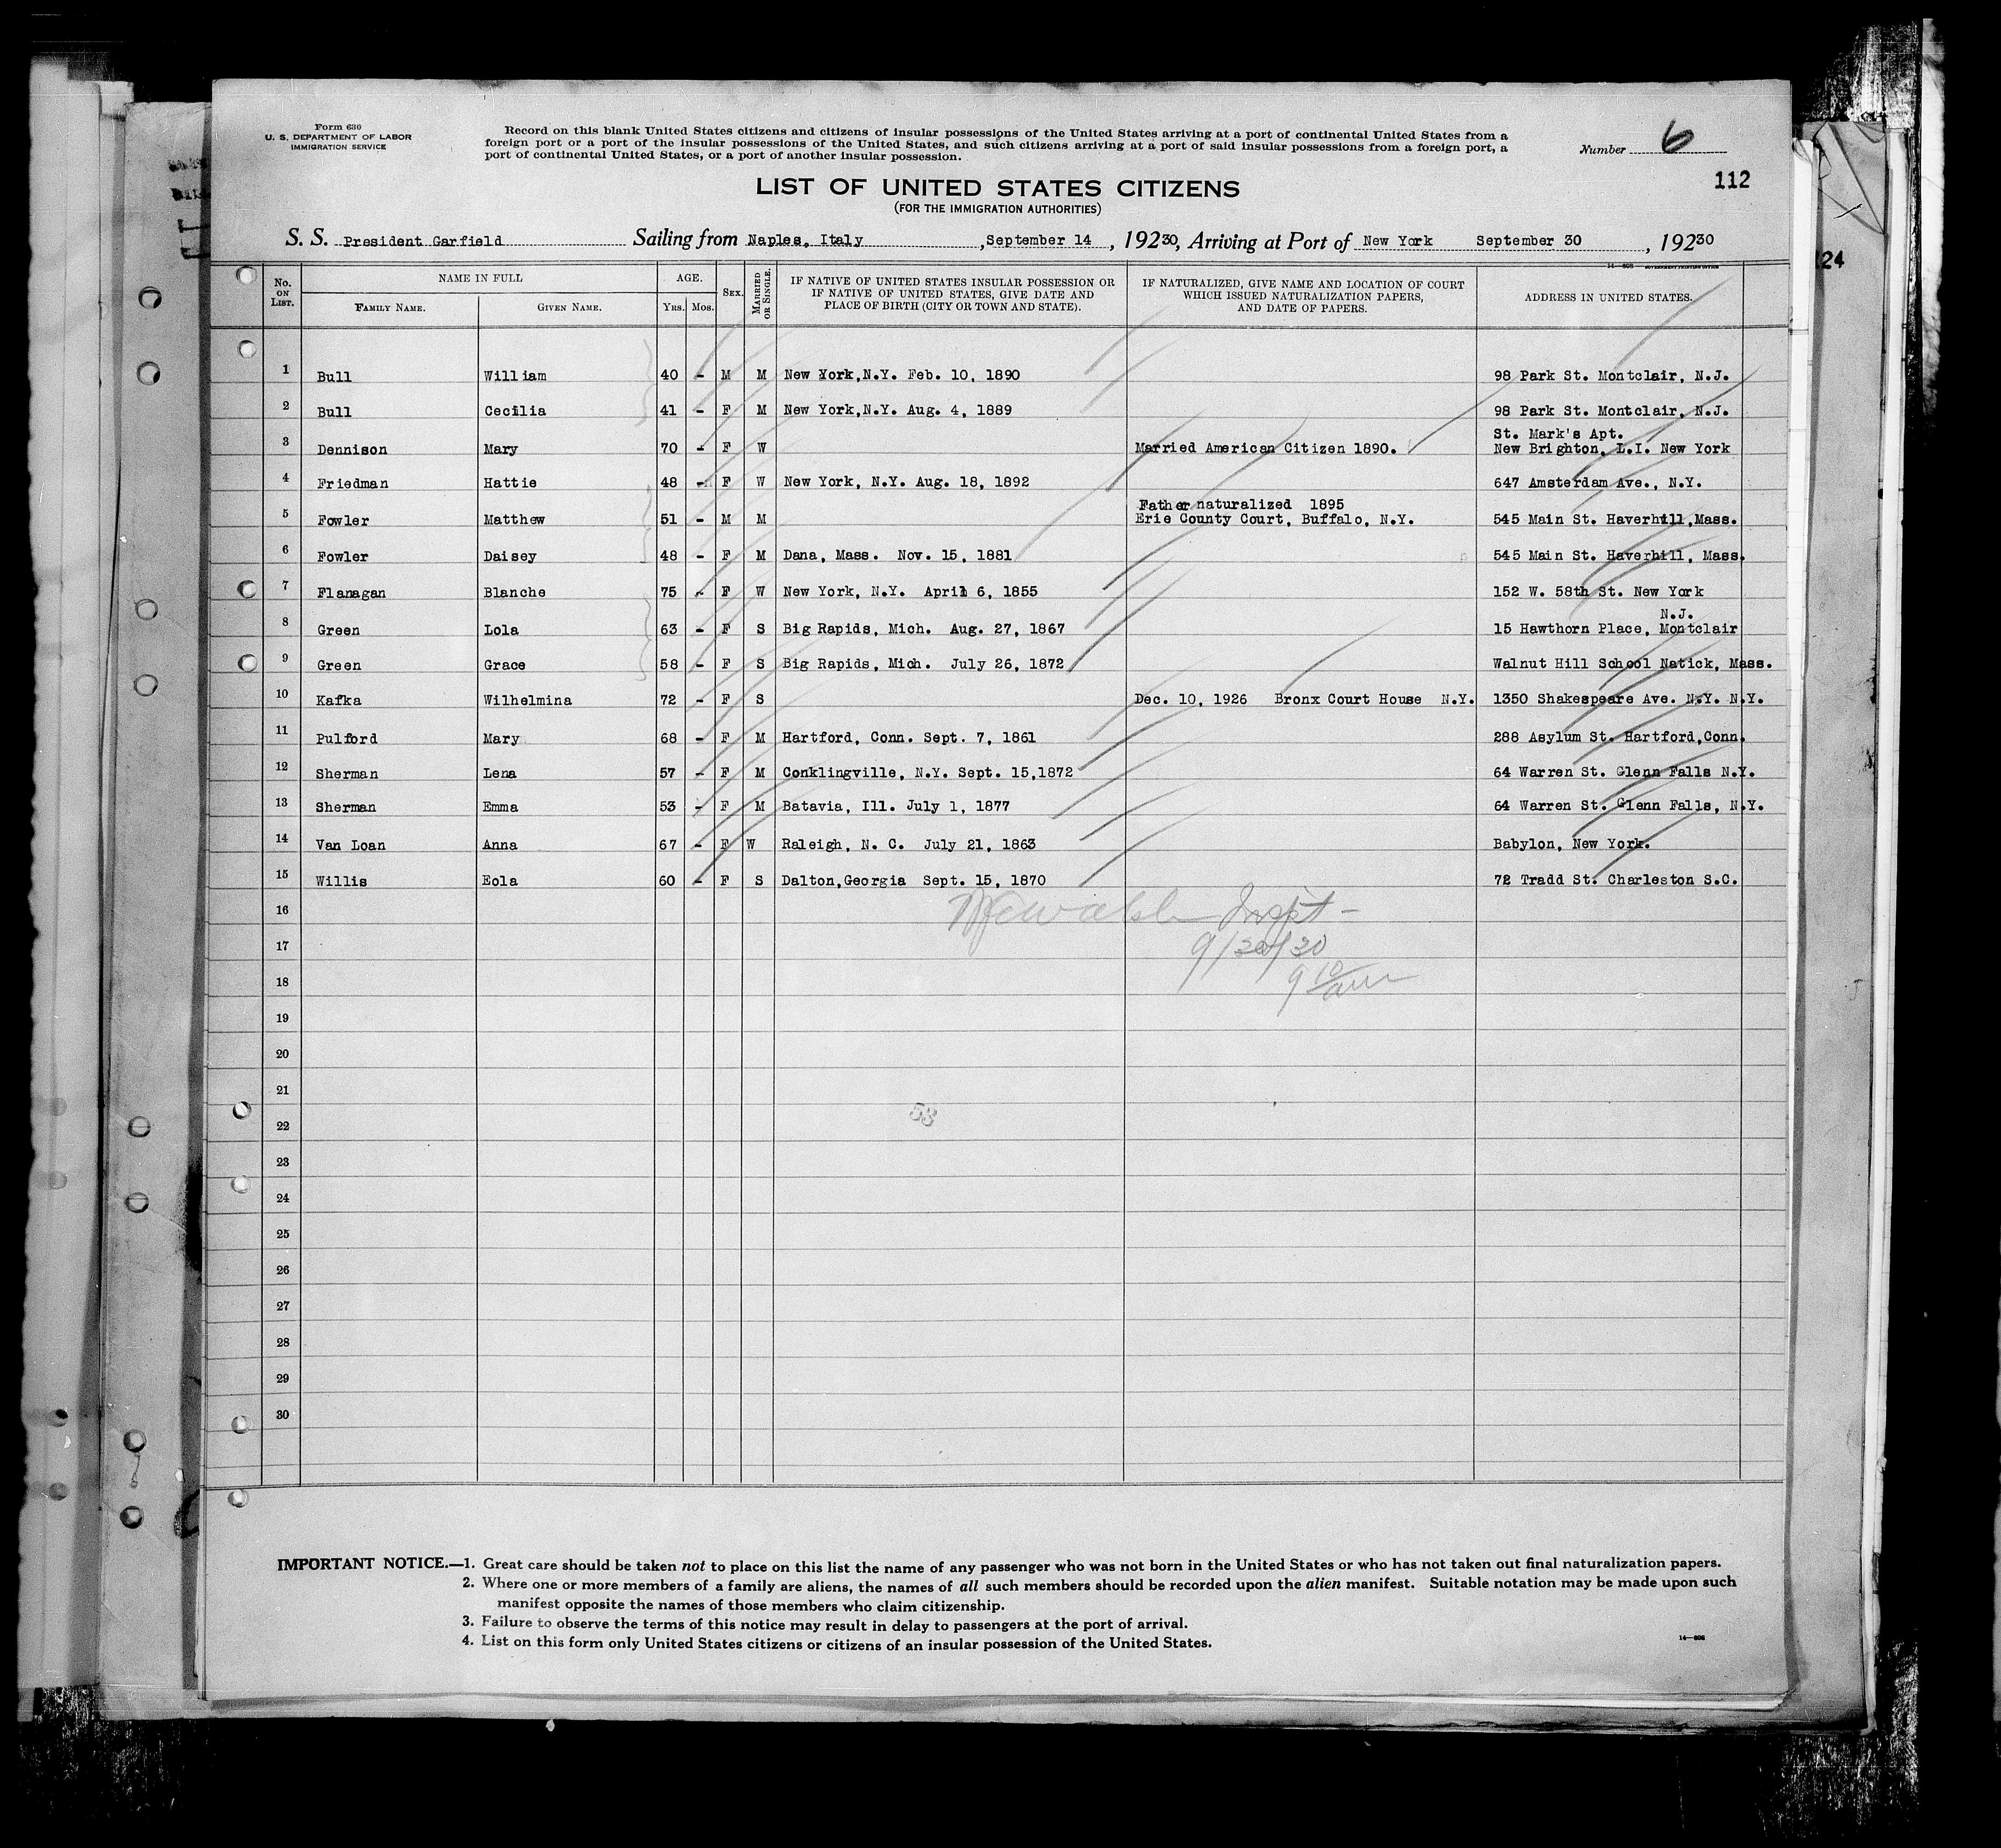 Form 630
U. S. DEPARTMENT OF LABOR
IMMIGRATION SERVICE
Record on this blank United States citizens and citizens of insular possessions of the United States arriving at a port of continental United States from a
foreign port or a port of the insular possessions of the United States, and such citizens arriving at a port of said insular possessions from a foreign port, a
port of continental United States, or a port of another insular possession.
Number 6
112
LIST OF UNITED STATES CITIZENS
(FOR THE IMMIGRATION AUTHORITIES)
S. S. President Garfield Sailing from Naples, Italy , September 14 , 19230, Arriving at Port of New York September 30 , 19230
124
No. ON LIST. NAME IN FULL AGE. SEX. MARRIED OR SINGLE. IF NATIVE OF UNITED STATES INSULAR POSSESSION OR IF NATIVE OF UNITED STATES, GIVE DATE AND PLACE OF BIRTH (CITY OR TOWN AND STATE). IF NATURALIZED, GIVE NAME AND LOCATION OF COURT WHICH ISSUED NATURALIZATION PAPERS, AND DATE OF PAPERS. ADDRESS IN UNITED STATES.
FAMILY NAME. GIVEN NAME. YRS. MOS.
1 Bull William 40 - M M New York,N.Y. Feb. 10, 1890 98 Park St. Montclair, N.J.
2 Bull Cecilia 41 - F M New York,N.Y. Aug. 4, 1889 98 Park St. Montclair, N.J.
St. Mark's Apt.
3 Dennison Mary 70 - F W Married American Citizen 1890. New Brighton, L.I. New York
4 Friedman Hattie 48 - F W New York, N.Y. Aug. 18, 1892 647 Amsterdam Ave., N.Y.
Father naturalized 1895
5 Fowler Matthew 51 - M M Erie County Court, Buffalo, N.Y. 545 Main St. Haverhill,Mass.
6 Fowler Daisey 48 - F M Dana, Mass. Nov. 15, 1881 545 Main St. Haverhill, Mass.
7 Flanagan Blanche 75 - F W New York, N.Y. April 6, 1855 152 W. 58th St. New York
N.J.
8 Green Lola 63 - F S Big Rapids, Mich. Aug. 27, 1867 15 Hawthorn Place, Montclair
9 Green Grace 58 - F S Big Rapids, Mich. July 26, 1872 Walnut Hill School Natick, Mass.
10 Kafka Wilhelmina 72 - F S Dec. 10, 1926 Bronx Court House N.Y. 1350 Shakespeare Ave. N.Y. N.Y.
11 Pulford Mary 68 - F M Hartford, Conn. Sept. 7, 1861 288 Asylum St. Hartford,Conn.
12 Sherman Lena 57 - F M Conklingville, N.Y. Sept. 15,1872 64 Warren St. Glenn Falls N.Y.
13 Sherman Emma 53 - F M Batavia, Ill. July 1, 1877 64 Warren St. Glenn Falls, N.Y.
14 Van Loan Anna 67 - F W Raleigh, N. C. July 21, 1863 Babylon, New York.
15 Willis Eola 60 - F S Dalton,Georgia Sept. 15, 1870 72 Tradd St. Charleston S.C.
16 Inspt -
17 9/30/30
18 9 10/am
19
20
21
22 53
23
24
25
26
27
28
29
30
IMPORTANT NOTICE.—1. Great care should be taken not to place on this list the name of any passenger who was not born in the United States or who has not taken out final naturalization papers.
2. Where one or more members of a family are aliens, the names of all such members should be recorded upon the alien manifest. Suitable notation may be made upon such
manifest opposite the names of those members who claim citizenship.
3. Failure to observe the terms of this notice may result in delay to passengers at the port of arrival.
4. List on this form only United States citizens or citizens of an insular possession of the United States.